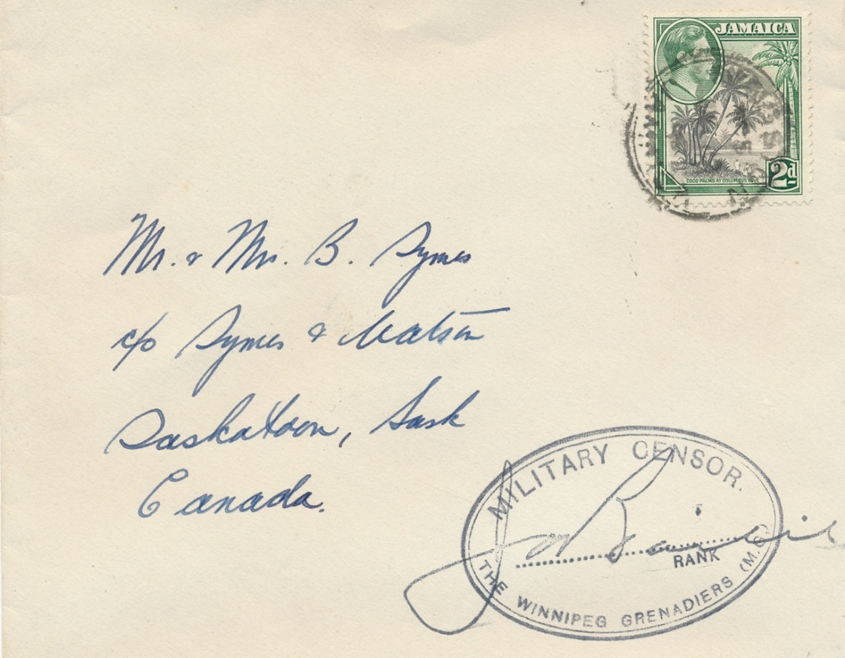 JAMAICA
COCO PALMS AT COLUMBUS
2d
Mr. & Mrs. B. Symes
c/o Symes & Watson
Saskatoon, Sask
Canada.
MILITARY CENSOR.
RANK
THE WINNIPEG GRENADIERS (M.G.)